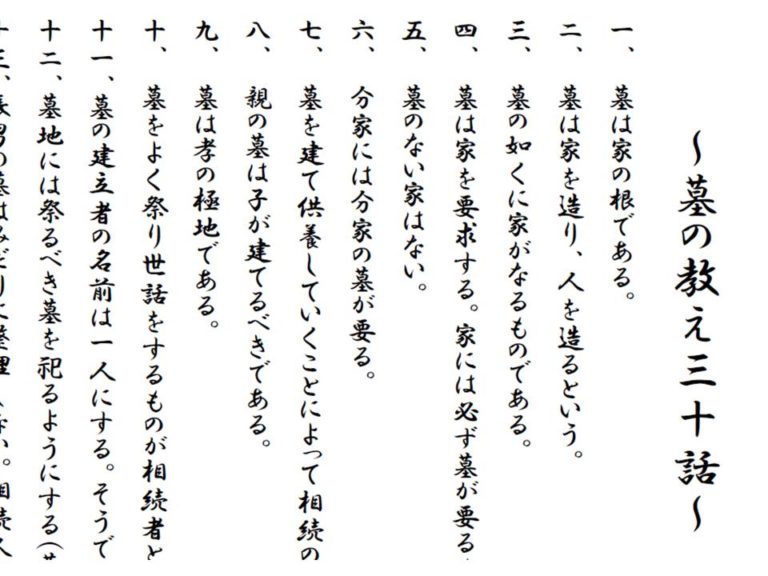 ～墓の教え三十話～
一、墓は家の根である。
二、墓は家を造り、人を造るという。
三、墓の如くに家がなるものである。
四、墓は家を要求する。家には必ず墓が要る
五、墓のない家はない。
六、分家には分家の墓が要る。
七、墓を建て供養していくことによって相続の
八、親の墓は子が建てるべきである。
九、墓は孝の極地である。
十、墓をよく祭り世話をするものが相続者と
十一、墓の建立者の名前は一人にする。そうで
十二、墓地には祭るべき墓を祀るようにする(
十三、長男の墓はみだりに整理しない。相続人